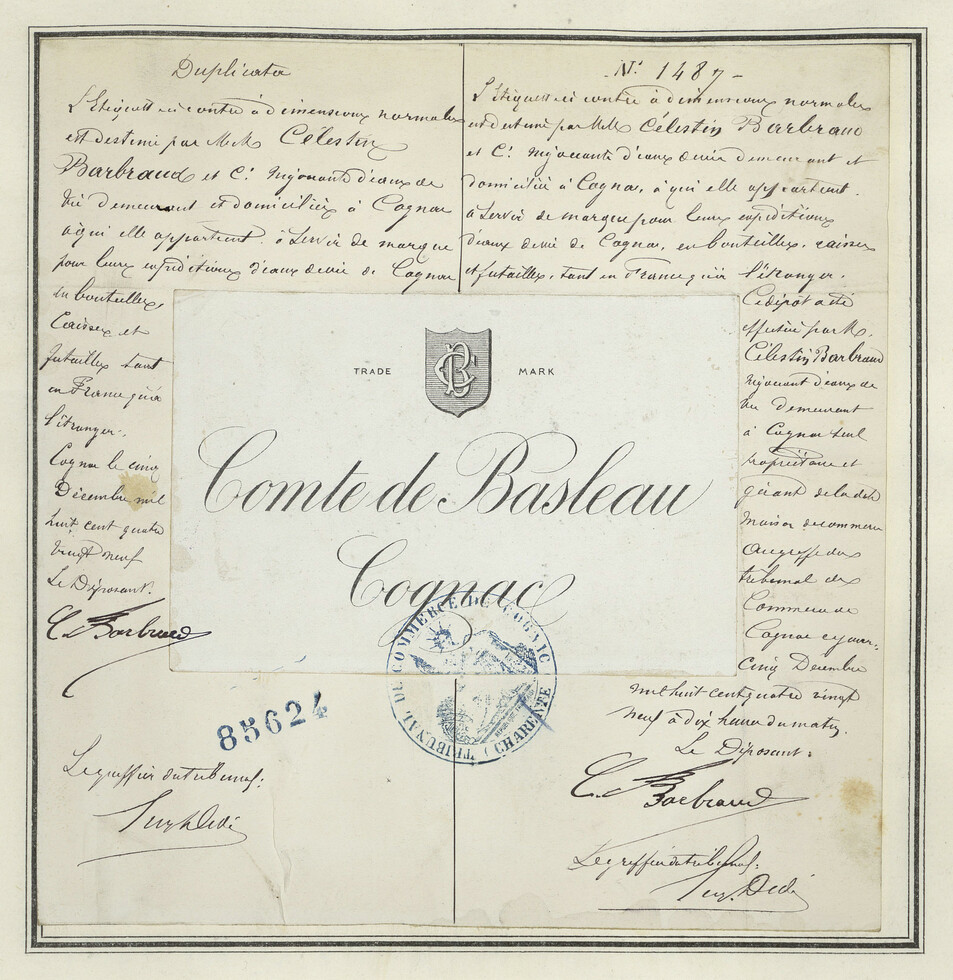 Duplicata
L'Etiquette ci contre à dimensions normales
est destinée par MM. Célestin
Barbraud et Cie. Négociants d'eaux de
vie demeurant et domiciliés à Cognac
à qui elle appartient. à Servir de marque
pour leurs expéditions d'eaux de vie de Cognac
en bouteilles,
Caisses et
futailles tant
en France qu'à
l'étranger.
Cognac le cinq
Décembre mil
huit cent quatre
vingt neuf
Le Déposant.
C. Barbraud
85624
Le greffier du tribunal:
- No. 1487 -
L'Etiquette ci contre à dimensions normales
est destinée par MM. Célestin Barbraud
et Cie. Négociants d'eaux de vie demeurant et
domiciliés à Cognac, à qui elle appartient.
à Servir de marque pour leurs expéditions
d'eaux de vie de Cognac, en bouteilles, caisses
et futailles, tant en France qu'à l'étranger.
Ce dépôt a été
effectué par M.
Célestin Barbraud
Négociant d'eaux de
vie demeurant
à Cognac seul
propriétaire et
gérant de la dite
Maison de commerce
au greffe du
tribunal de
Commerce de
Cognac ce jour,
cinq Décembre
mil huit cent quatre vingt
neuf à dix heures du matin.
Le Déposant:
C. Barbraud
Le greffier du tribunal:
TRADE MARK
CB
Comte de Basleau
Cognac
TRIBUNAL DE COMMERCE DE COGNAC
(CHARENTE)